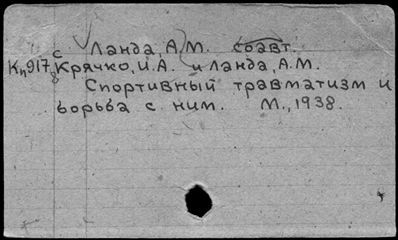 Ланда, А.М. соавт.
с
Кп917₈ Крячко, И.А. и Ланда, А.М.
Спортивный травматизм и
борьба с ним. М., 1938.